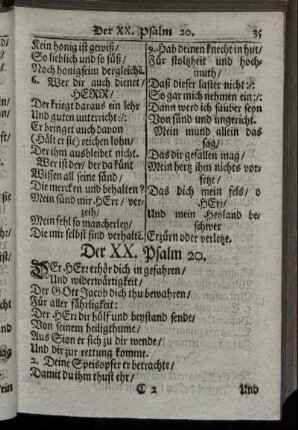 Der XX. Psalm 20. 35
Kein honig ist gewiß/
So lieblich und so süß/
Noch honigseim dergleichē.
6. Wer dir auch dienet/
HERR/
Der kriegt daraus ein lehr
Und guten unterricht:/:
Er bringet auch davon
(Hält er sie) reichen lohn/
Der ihm ausbleibet nicht.
Wer ist der/ der da kūnt
Wissen all seine sünd/
Die mercken und behalten?
Mein sünd mir HErr/ ver-
zeih/
Mein fehl so mancherley/
Die mir selbst sind verhaltē.
9. Hab deinen knecht in hut/
Für stoltzheit und hoch-
muth/
Daß dieser laster nicht:/:
So gar mich nehmen ein:/:
Dann werd ich sauber seyn
Von sünd und ungericht.
Mein mund allein das
sag/
Das dir gefallen mag/
Mein hertz ihm nichts vor-
setze/
Das dich mein fels/ o
HErr/
Und mein Heyland be-
schwer
Erzürn oder verletze.
Der XX. Psalm 20.
DEr HErr erhör dich in gefahren/
Und widerwärtigkeit/
Der GOtt Jacob dich thu bewahren/
Für aller fährligkeit:
Der HErr dir hülf und beystand sende/
Von seinem heiligthume/
Aus Sion er sich zu dir wende/
Und dir zur rettung komme.
2. Deine Speisopfer er betrachte/
Damit du ihm thust ehr/
C 2 Und